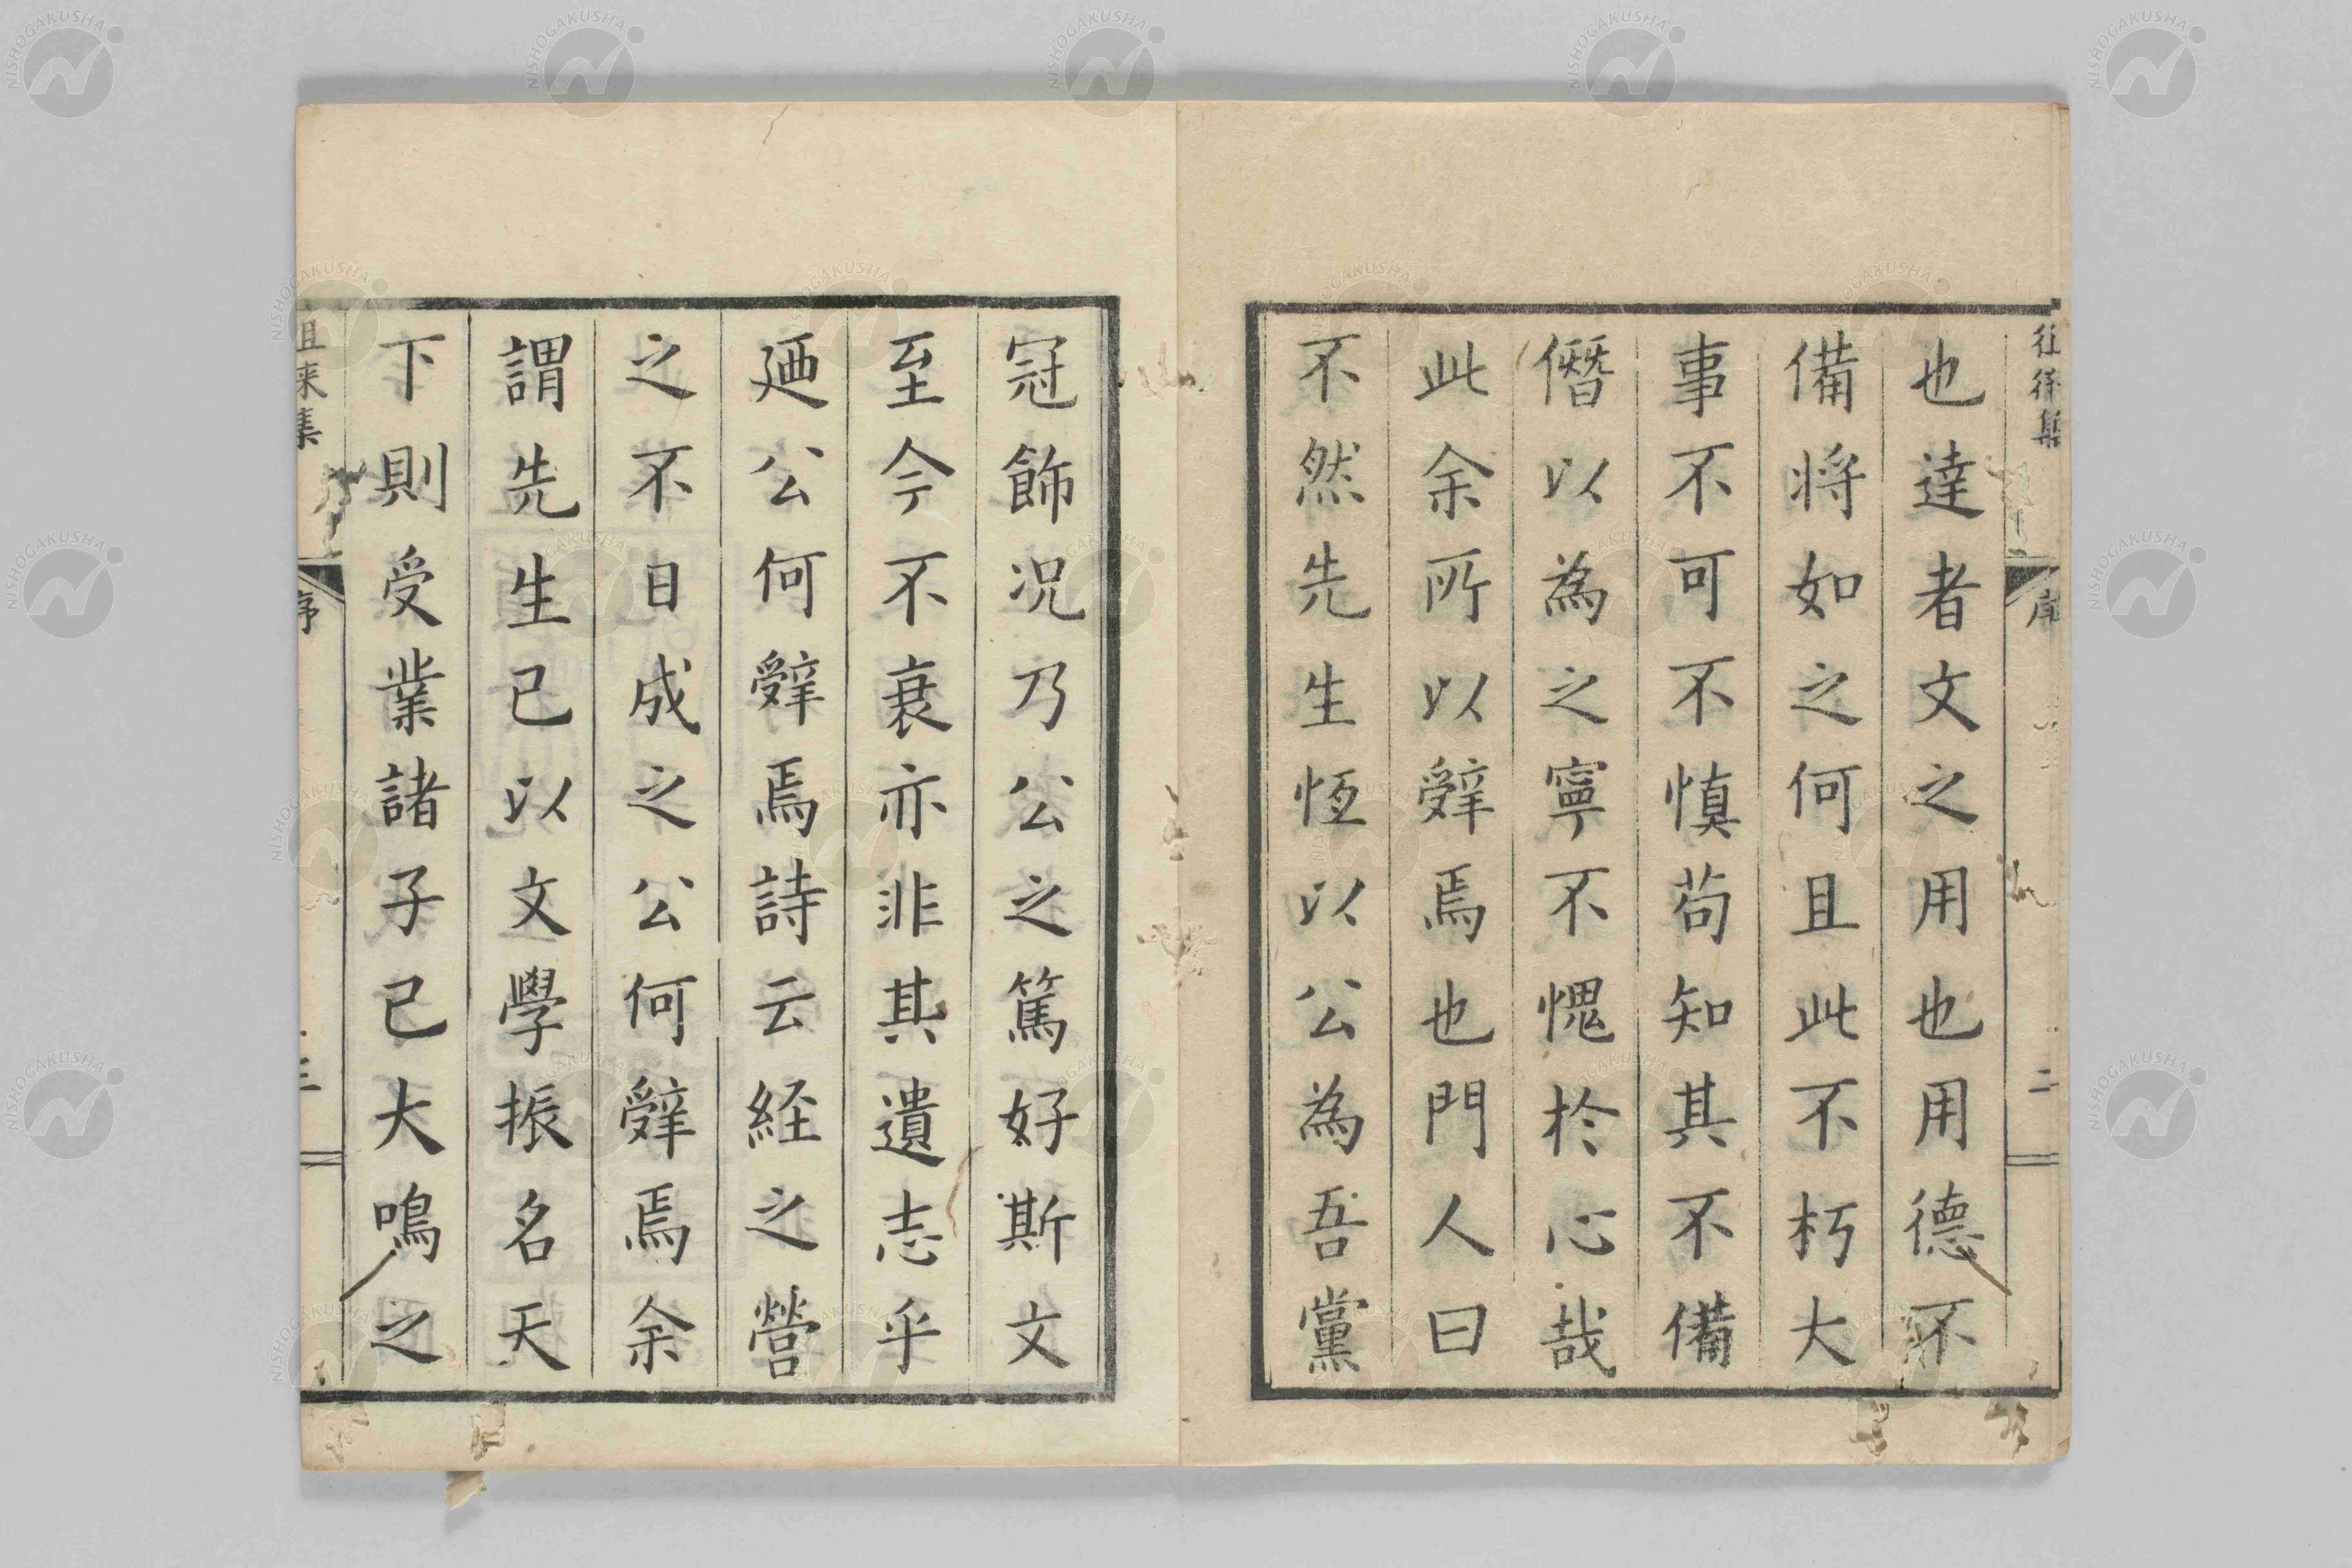 也達者文之用也用德不
備将如之何且此不朽大
事不可不慎苟知其不備
僭以為之寧不愧於心哉
此余所以辤焉也門人曰
不然先生恆以公為吾黨
冠飾况乃公之篤好斯文
至今不衰亦非其遺志乎
廼公何辤焉詩云経之營
之不日成之公何辤焉余
謂先生已以文學振名天
下則受業諸子已大鳴之
徂徠集
序
二
徂来集
序
三
NISHOGAKUSHA